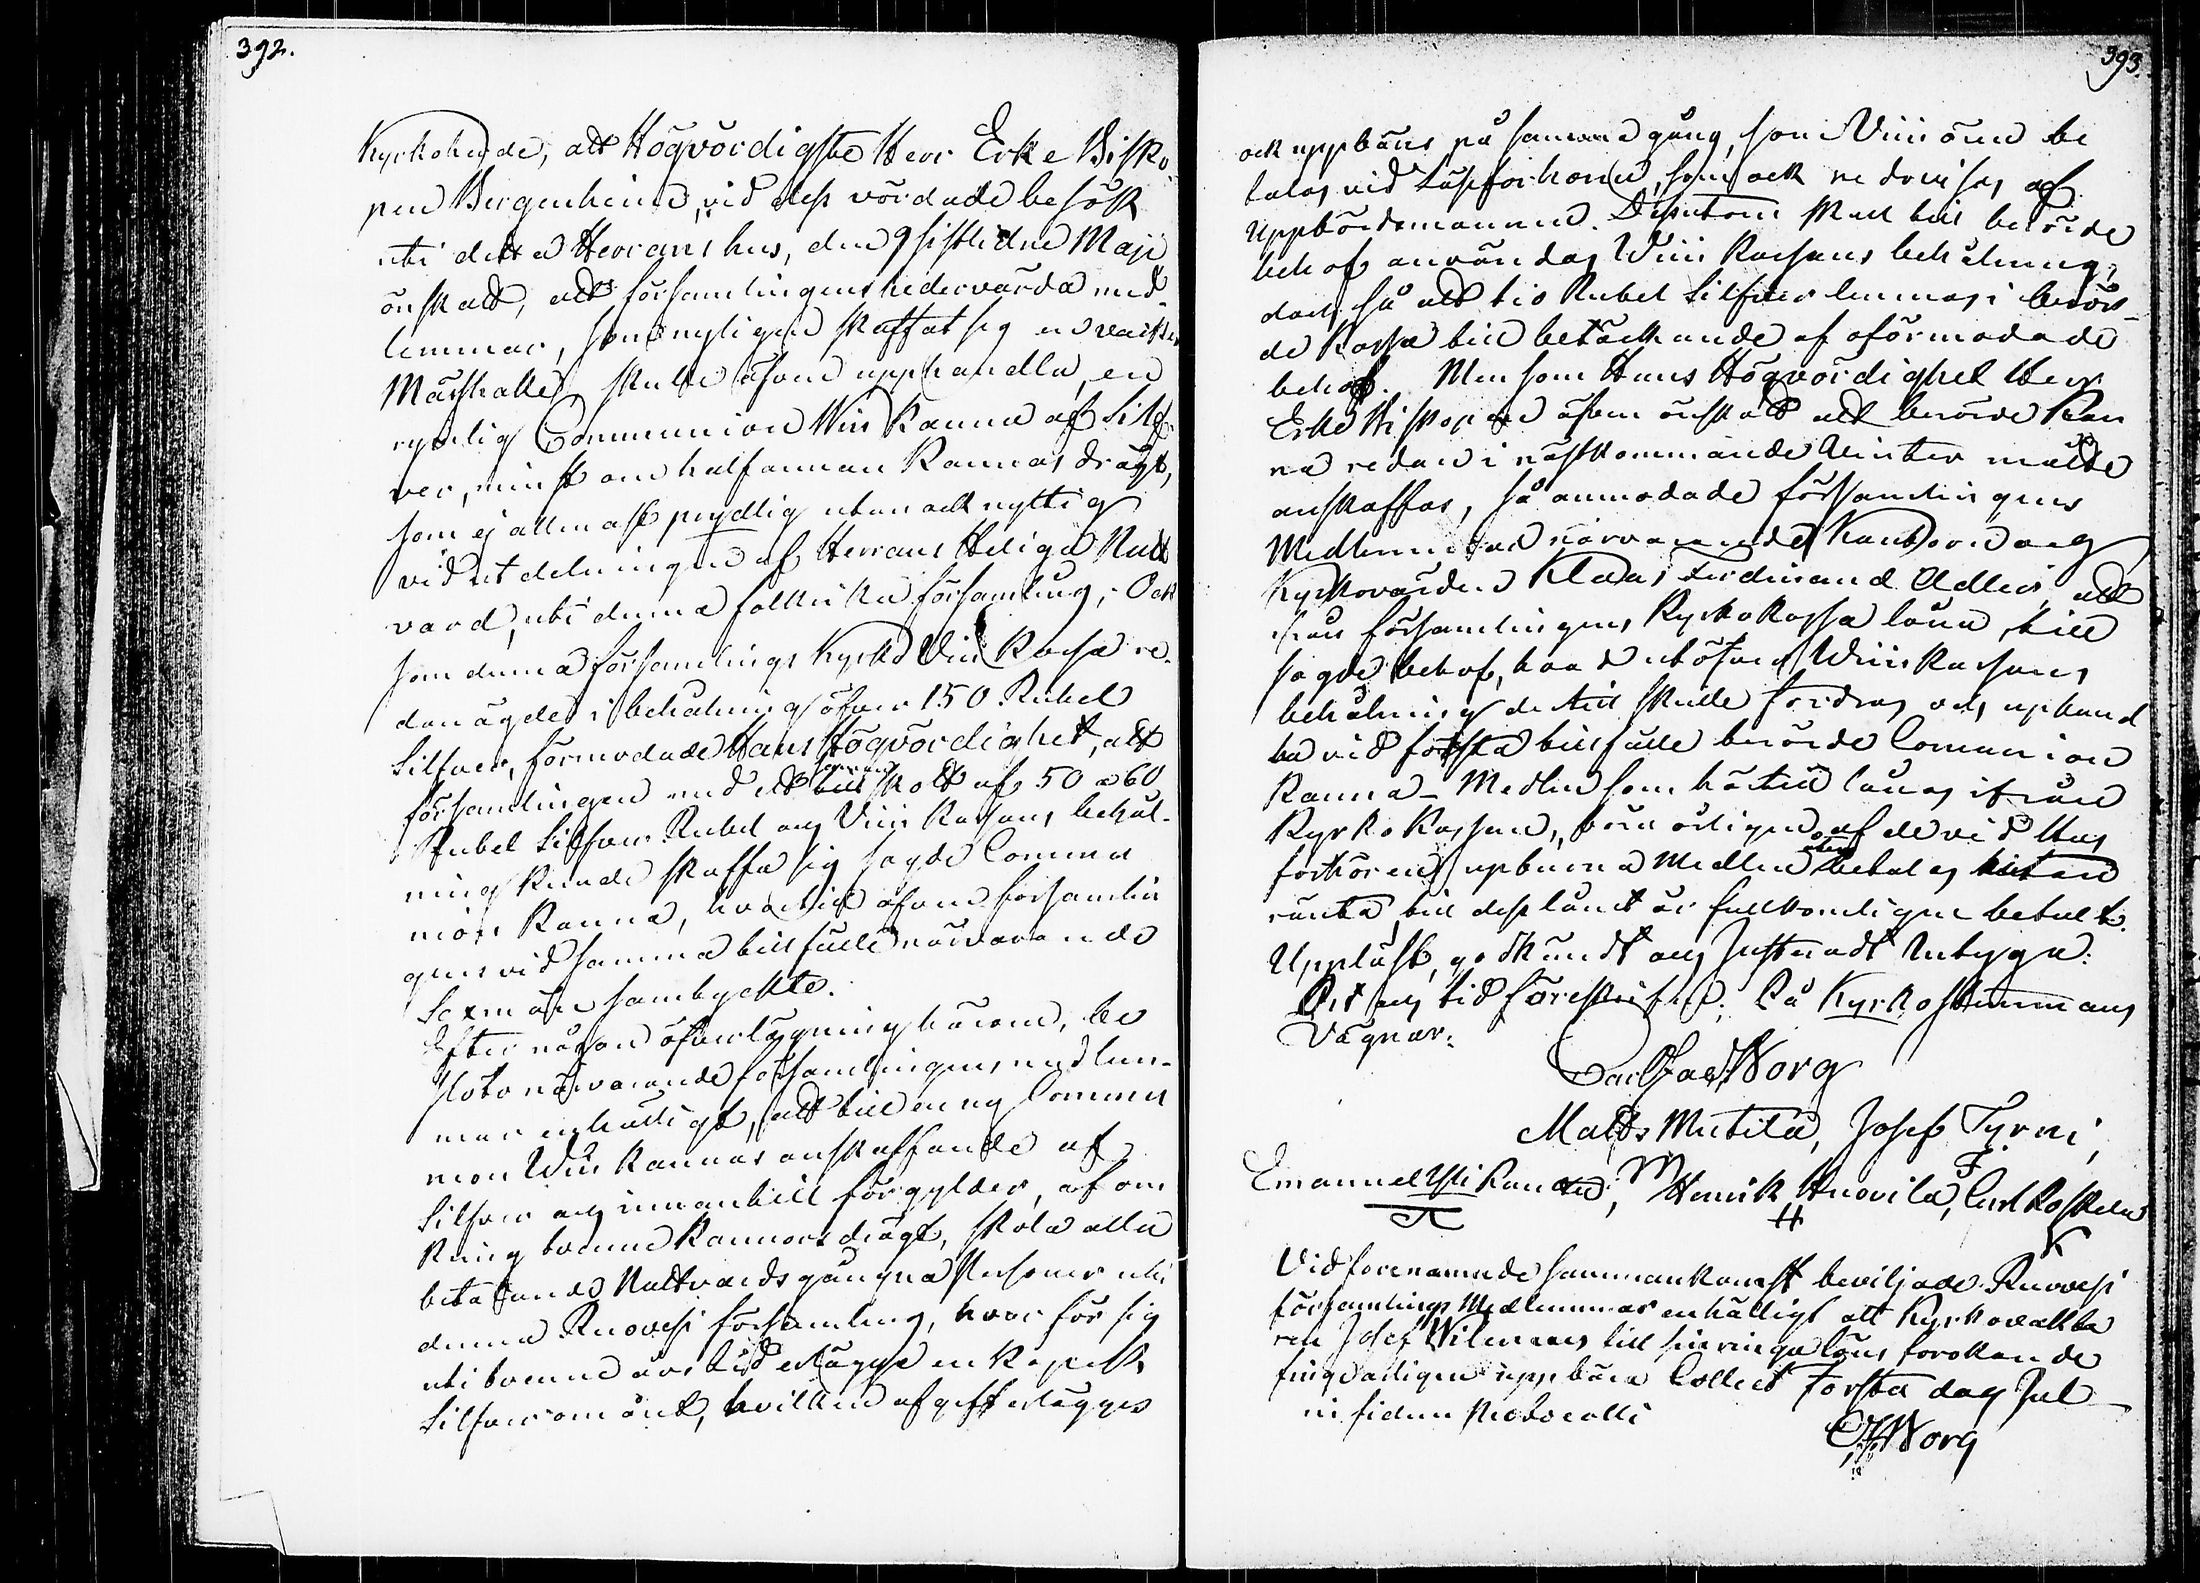 392.
Kyrkoherde, att Högvördigste Herr Erke Bisko-
pen Bergenheim, vid dess vördade besök
uti detta Herrans hus, den 9 sistlidne Maji
önskat, att församlingens hedervärda med-
lemmar, som nyligen skaffat sig en vacker
Mässhake, skulle äfven upphandla, en
rymlig Communion Win Kanna af Silf-
ver, minst om half annan Kannas drägt,
som ej allenast prydlig utan ock nyttig
vid utdelningen af Herrans Heliga Natt
vard, uti denna folkrika församling; Och
som denna församlings Kyrko Vin Kassa re-
dan ägde i behållning öfver 150 Rubel
Silfver, förmodade Hans Högvördighet, att
församlingen med ett tillskott af 50 a 60
Rubel Silfver Rubel och Vin Kassans behåll-
ning kunde skaffa sig sagde Commu
nion Kanna, hvartill äfven församlin
gens vid samma tillfälle närvarande
Sexmän samtyckte.
Efter någon öfverläggning härom, be
slöto närvarande församlingens medlem-
mar enhälligt, att till en ny Commu
nion Win Kannas anskaffande af
Silfver och innantill förgylder, af om
kring tvenne Kannors drägt, skola alla
betalande Nattvards gångna Personer uti
denna Ruovesi församling, hvar för sig
uti tvenne års tid erlägga en kopek
Silfver om året, hvilken afgift erlägges
393.
och uppbäres på samma gång, som Vin ören be
talas vid Läsförhören, som ock redovisas af
Uppbördsmannen. Dessutom skall till berörde
behof användas Win Kassans behållning,
dock så att tio Rubel Silfver lemnas i berör-
de Kassa till betäckande af oförmodade
behof. Men som Hans Högvördighet Herr
Erke Biskopen äfven önskat att berörde Kan
na redan i nästkommande Winter måtte
anskaffas, så anmodade församlingens
Medlemmar närvarande Kantorn och
Kyrkovärden Klaas Ferdinand Adler, att
ifrån församlingens Kyrko Kassa låna, till
sagde behof, hvad utöfver Win Kassans
behållning dertill skulle fordras och uphand
la vid första tillfälle berörde Communion
Kanna – Medlen som härtill lånas ifrån
Kyrko Kassan, böra årligen af de vid Läs
förhören upburna Medlen åter betalas utan
ränta, till dess lånet är fullkomligen betalt.
Uppläst, godkändt och justeradt betyga:
Ort och tid föreskrifne; På Kyrkostämmans
Vägnar:
Carl Jac Norg
Matts Mutila, Josef Tyrni,
M F
Emanuel Yli Kan, Henrik Knovila, Carl Koskela
H K
Vid förenämnde sammankomst beviljade Ruovesi
församlings Medlemmar enhälligt att Kyrkovakta
ren Josef Wilenius till sin ringa löns förökande
finge årligen uppbära Collect första dag Jul –
in fidem Protocolli
CJ Norg